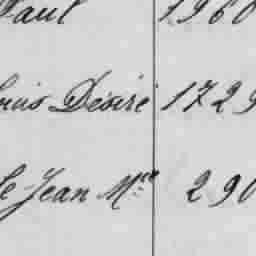 Paul 1960
ouis Désiré 1729
le Jean Mie 290